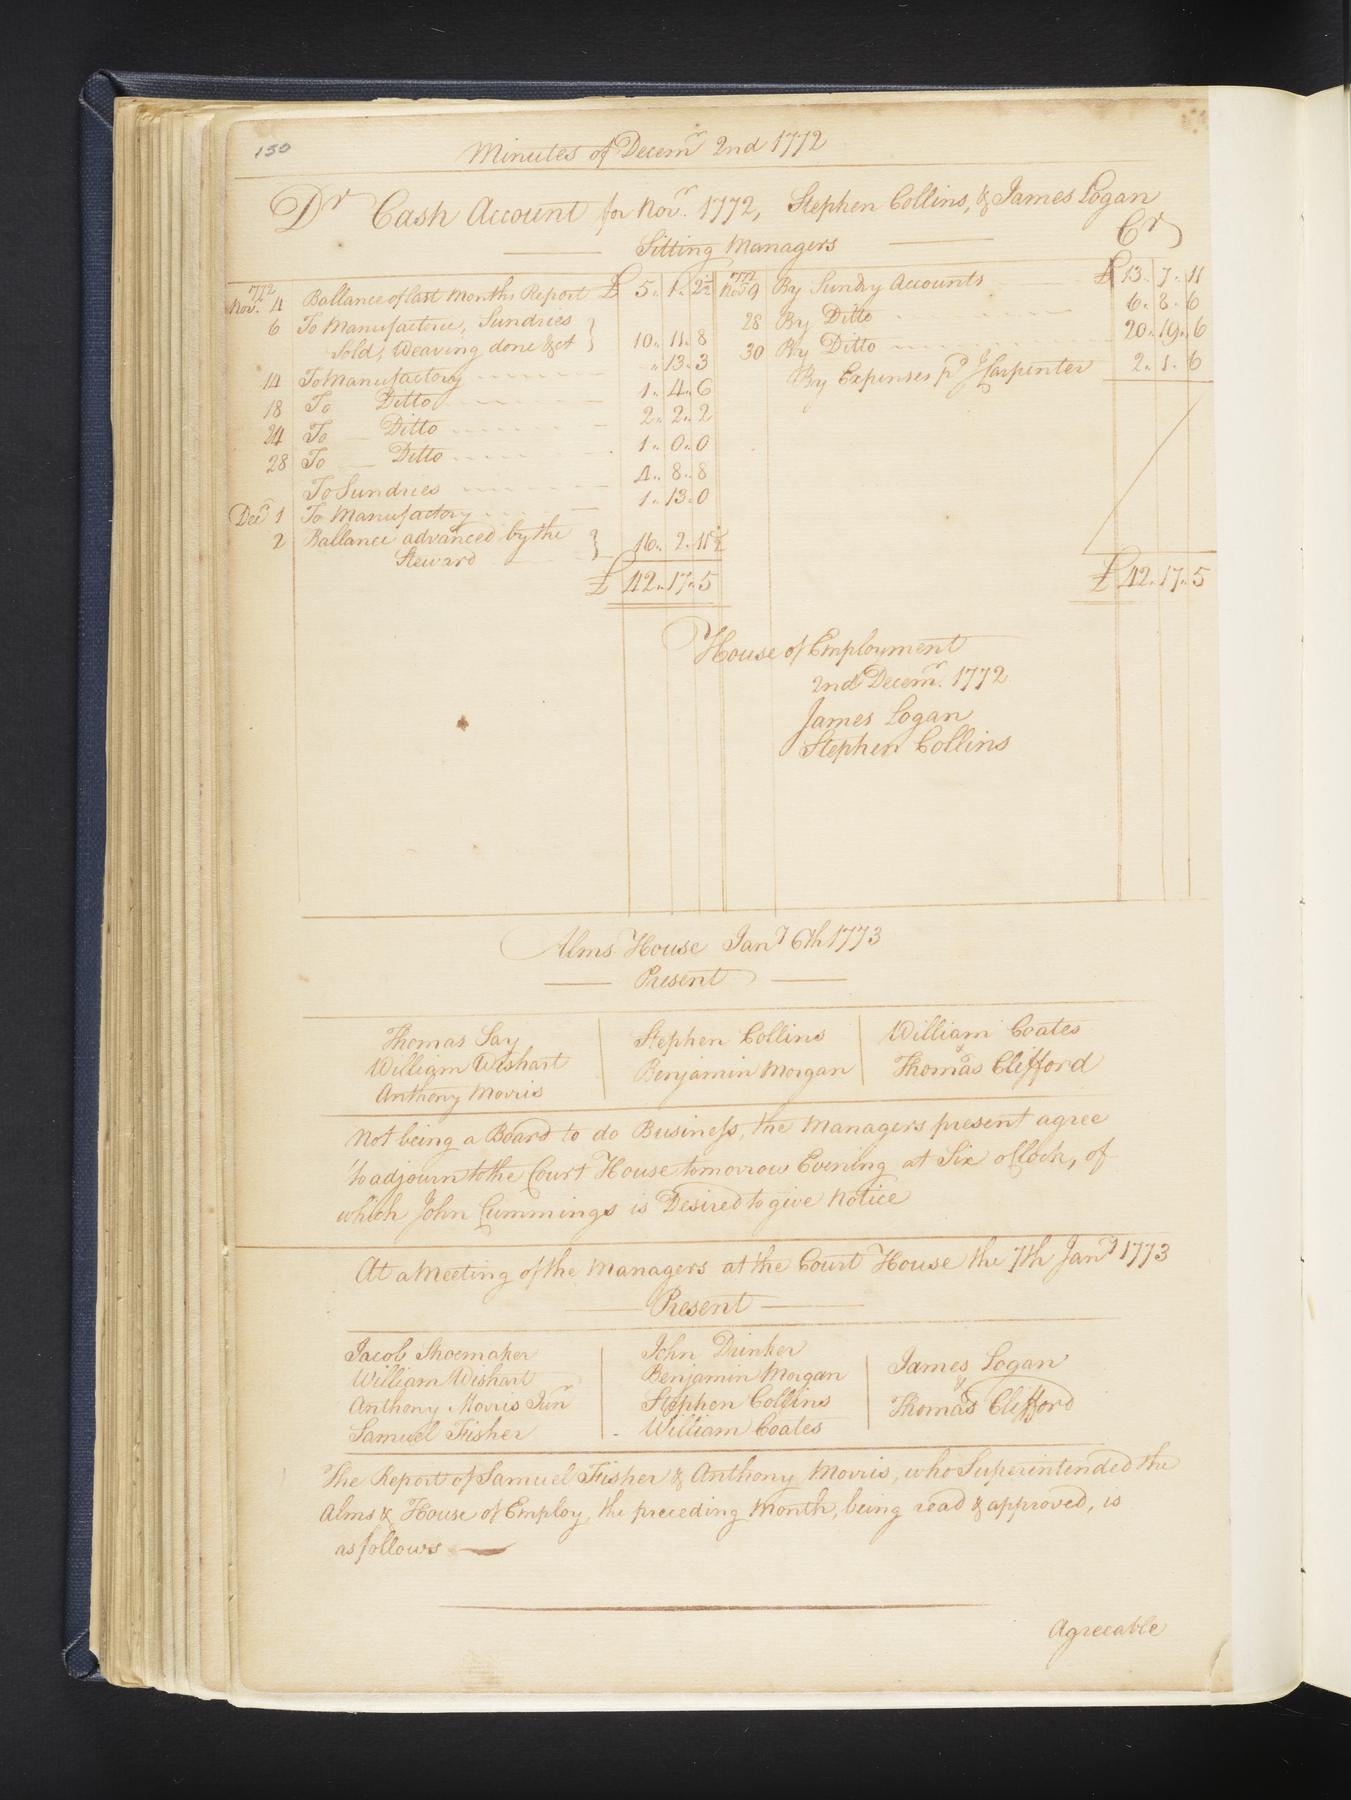 150
Minutes of Decemr 2nd 1772
Dr Cash Account for Novr. 1772, Stephen Collins, & James Logan
Sitting Managers Cr
1772
Nov. 4 Ballance of last Months Report £ 5.. 1.. 2½
6 To Manufacture, Sundries
Sold, Weaving done &ct } 10.. 11.. 8
14 To Manufactory .. 13.. 3
18 To Ditto 1.. 4.. 6
24 To Ditto 2.. 2.. 2
28 To Ditto 1.. 0.. 0
To Sundries 4.. 8.. 8
Decr 1 To Manufactory 1.. 13.. 0
2 Ballance advanced by the
Steward } 16.. 2.. 11½
£ 42.. 17.. 5
1772
Nov 9 By Sundry Accounts £ 13.. 7.. 11
28 By Ditto 6.. 8.. 6
30 By Ditto 20.. 19.. 6
By Expenses pd J Carpenter 2.. 1.. 6
£ 42.. 17.. 5
House of Employment
2nd Decemr. 1772
James Logan
Stephen Collins
Alms House Jany 6th 1773
Present
Thomas Say
William Wishart
Anthony Morris
Stephen Collins
Benjamin Morgan
William Coates
&
Thomas Clifford
Not being a Board to do Business, the Managers present agree
to adjourn to the Court House tomorrow Evening at Six oClock, of
which John Cummings is Desired to give Notice
At a Meeting of the Managers at the Court House the 7th Jany 1773
Present
Jacob Shoemaker
William Wishart
Anthony Morris Junr
Samuel Fisher
John Drinker
Benjamin Morgan
Stephen Collins
William Coates
James Logan
&
Thomas Clifford
The Report of Samuel Fisher & Anthony Morris, who Superintended the
Alms & House of Employ, the preceding Month, being read & approved, is
as follows
Agreeable